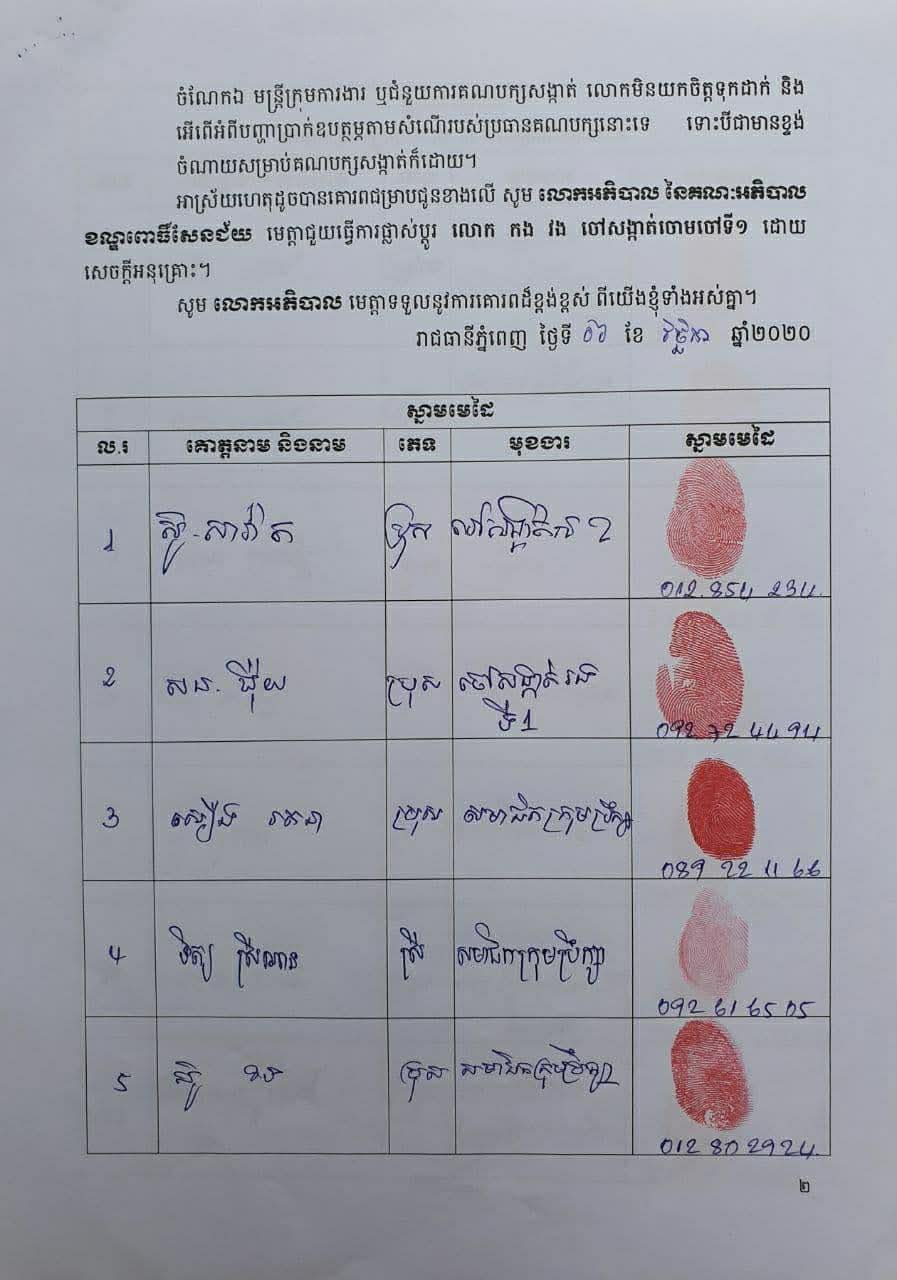 ចំណែកឯ មន្ត្រីក្រុមការងារ ឬជំនួយការគណបក្សសង្កាត់ លោកមិនយកចិត្តទុកដាក់ និង
អើពើអំពីបញ្ហាប្រាក់ឧបត្ថម្ភតាមសំណើរបស់ប្រធានគណបក្សនោះទេ ទោះបីជាមានខ្ទង់
ចំណាយសម្រាប់គណបក្សសង្កាត់ក៏ដោយ។
អាស្រ័យហេតុដូចបានគោរពជម្រាបជូនខាងលើ សូម លោកអភិបាល នៃគណៈអភិបាល
ខណ្ឌពោធិ៍សែនជ័យ មេត្តាជួយធ្វើការផ្លាស់ប្តូរ លោក កង វង ចៅសង្កាត់ចោមចៅទី១ ដោយ
សេចក្តីអនុគ្រោះ។
សូម លោកអភិបាល មេត្តាទទួលនូវការគោរពដ៏ខ្ពង់ខ្ពស់ ពីយើងខ្ញុំទាំងអស់គ្នា។
រាជធានីភ្នំពេញ ថ្ងៃទី ០៦ ខែ វិច្ឆិកា ឆ្នាំ២០២០
ស្នាមមេដៃ
ល.រ គោត្តនាម និងនាម ភេទ មុខងារ ស្នាមមេដៃ
1 ប្រុស
012.854 234.
2 ប្រុស ចៅសង្កាត់រង
ទី1
092 72 44 94
3 ប្រុស សមាជិកក្រុមប្រឹក្សា
089 22 11 66
4 ស្រី សមាជិកក្រុមប្រឹក្សា
092 61 65 05
5 ប្រុស សមាជិកក្រុមប្រឹក្សា
012 80 29 24.
២